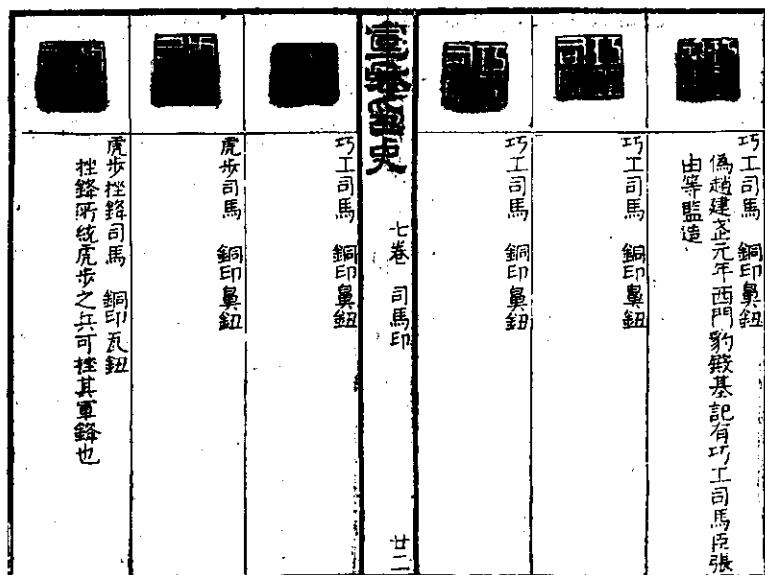 巧工司馬 銅印鼻鈕
偽趙建武元年西門豹殿基記有巧工司馬臣張
由等監造
巧工司馬 銅印鼻鈕
巧工司馬 銅印鼻鈕
宣龢印史 七卷 司馬印 廿二
巧工司馬 銅印鼻鈕
虎步司馬 銅印鼻鈕
虎步挫鋒司馬 銅印瓦鈕
挫鋒所統虎步之兵可挫其軍鋒也